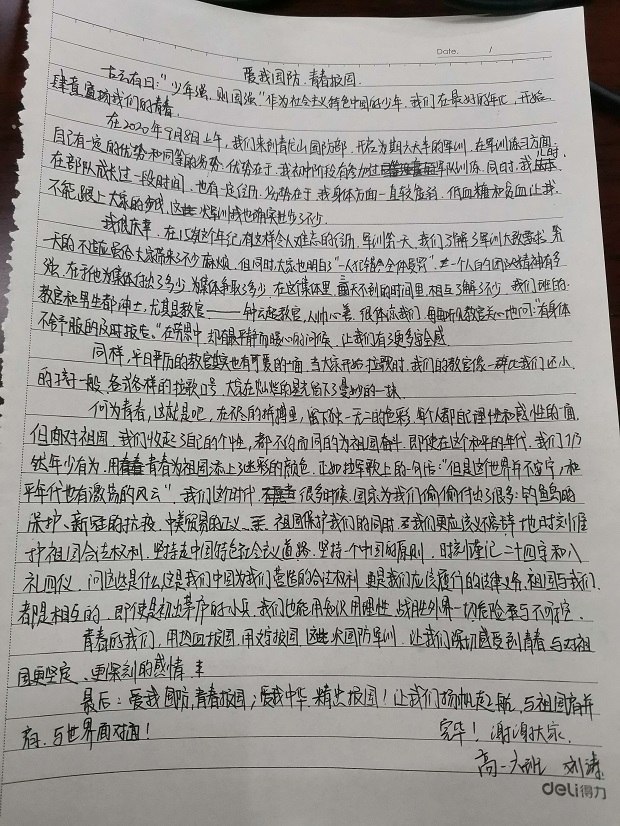 Date. /
爱我国防.青春报国.
古云有曰:"少年强,则国强."作为社会主义特色中国的少年.我们在最好的年代,开始
肆意宣扬我们的青春.
在2020年9月8日上午,我们来到青龙山国防部,开启为期六大天的军训,在军训练习方面,
自己有一定的优势和同等的劣势.优势在于,我初中阶段有参加过军队训练,同时,我儿时,
在部队成长过一段时间,也有一定经历.劣势在于,我身体方面一直较虚弱,低血糖和贫血让我
不能跟上大家的步伐,这些火训我也确实进步了不少.
我很庆幸,在15岁这个年纪,有这样令人难忘的经历.军训第一天,我们了解了军训大致要求,第
一天的不适应虽给大家带来了不少麻烦,但同时,大家也明白了"一人犯错,全体受罚".一个人的团队精神有多
强,在于他为集体付出了多少,为集体争取了多少.在这集体里,两天不到的时间里,相互了解了不少,我们班的
教官和男生都绅士,尤其是教官——钟云起教官,人帅心善,很体谅我们,每每听见教官关心地问:"有身体
不舒服的及时报告."在苦累中,却有最平静而暖心的问候,让我们有了更多安全感.
同样,平日严厉的教官其实也有可爱的一面,当大家开始拉歌时,我们的教官像一群比我们还小
的孩子一般,各式各样的拉歌口号,大家在灿烂的星光留下了曼妙的一抹.
何为青春,这就是吧,在尽的拼搏里,留下独一无二的色彩,每个人都自己理性和感性的一面,
但面对祖国,我们收起了自己的个性,都不约而同的为祖国奋斗.即使在这个和平的年代,我们仍
然年少有为,用青春为祖国添上了迷彩的颜色.正如拉军歌上的一句话:"但是这世界并不安宁,和
平年代也有激荡的风云".我们这时代,很多时候,国家为我们偷偷付出了很多:钓鱼岛的
保护、新冠的抗疫、中美贸易的正义,祖国保护我们的同时,我们更应该不忘时刻维
护祖国合法权利,坚持走中国特色社会主义道路,坚持一个中国的原则,时刻谨记二十四字和八
礼四仪.问这这是什么,这是我们中国为我们营造的合法权利,更是我们应该履行的法律义务,祖国与我们,
都是相互的,即使是初出茅庐的小兵,我们也能用知识,用理性,战胜外界一切危险与不可抗.
青春的我们,用热血报国,用文字报国,这些火国防军训,让我们深切感受到青春与对祖
国更坚定、更深刻的感情.
最后:爱我国防,青春报国;爱我中华,精忠报国!让我们扬帆起航,与祖国肩并
肩,与世界面对面!
完毕!谢谢大家.
高一六班 刘涛
deli得力